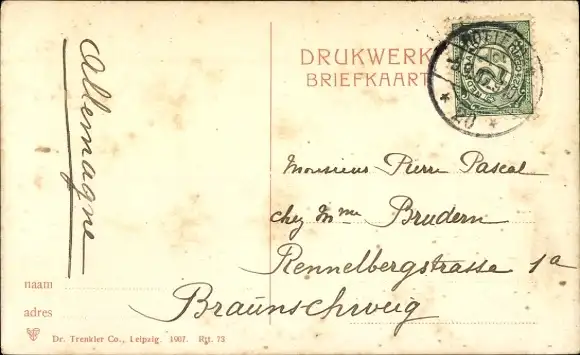 Allemagne
DRUKWERK
BRIEFKAART
Monsieur Pierre Pascal
chez Mme Brudern
Rennelbergstrasse 1a
Braunschweig
naam
adres
Dr. Trenkler Co., Leipzig. 1907. Rtt. 73